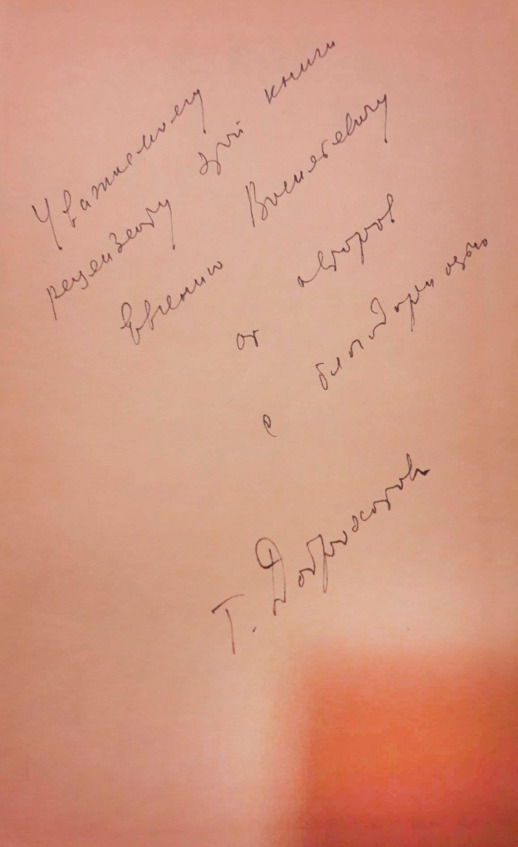 Уважаемому
рецензенту этой книги
Евгению Васильевичу
от авторов
с благодарностью
Т. Доброхотов